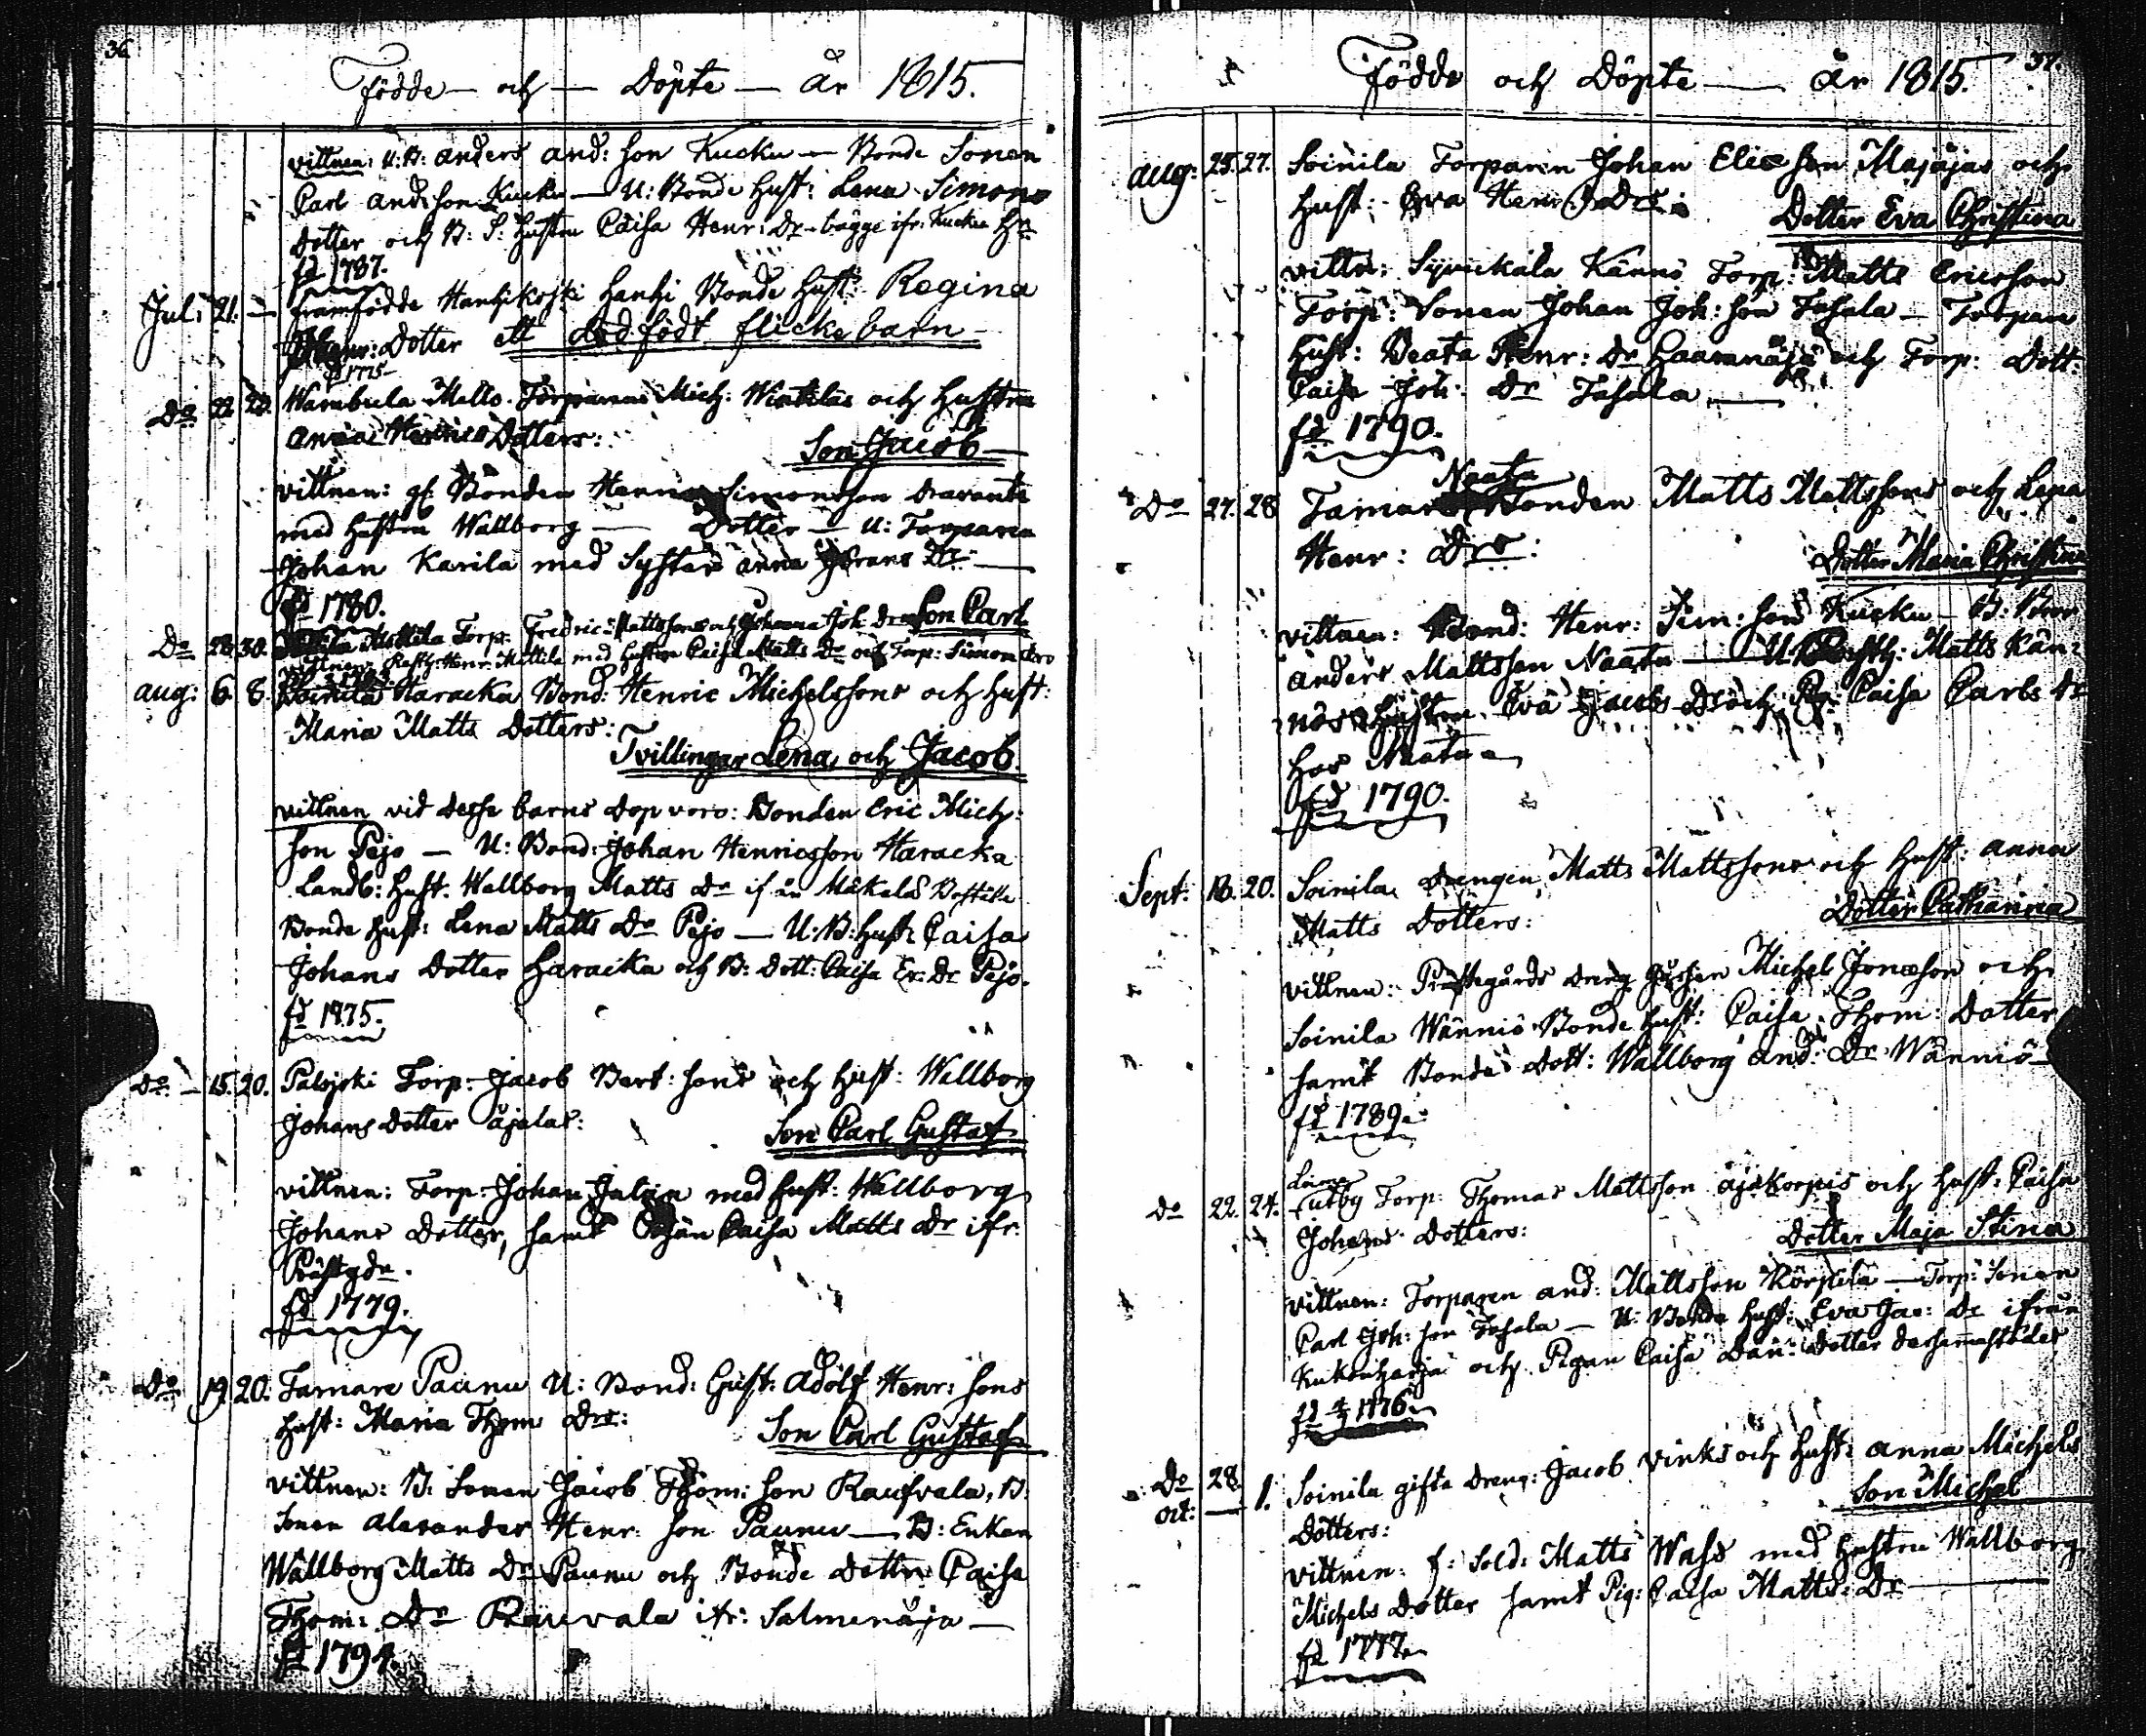 36
Födde — och — Döpte — år 1815.
vittnen: U: B: anders and: son Kucku — Bonde Sonen
Carl and: son Kucku — U: Bonde Hust: Lena Simons
Dotter och B: S: Hustru Caisa Henr: Dr bägge ifr: Kucku Hn
fd 1787.
Jul: 21. — framfödde Hanhikoski Hanhi Bonde Hust: Regina
Dotter ett dödfödt flickebarn —
fd 1775
Do 22. 23. Mich: och Hustru
Henrics Dotters: Son Jacob —
vittnen: gl: Bonden Simonsson
med Hustru Wallborg — Dotter — U: Torparen
Johan Karila med Syster anna Görans Dr —
fd 1780.
Do 28. 30. Mattila Torp: Fredric Mattssons och Johanna Joh: Drs Son Carl
vittnen: Henr: Mattila med Hustru Caisa Matts Dr och Torp: Simon
aug: 6. 8. Soinila Haracka Bond: Henric Michelssons och Hust:
Maria Matts Dotters:
Tvillingar Lena, och Jacob.
vittnen vid desse barns dop voro: Bonden Eric Mich:
son Pejo — U: Bond: Johan Henricsson Haracka
Landb: Hust: Wallborg Matts Dr if: än Mäkelä Boställe
Bonde Hust: Lena Matts Dr Pejo — U: B: Hust: Caisa
Johans Dotter Haracka och B: Dott: Caisa Er: Dr Pejo.
fd 1775.
Do — 15. 20. Palojoki Torp: Jacob Bert: sons och Hust: Wallborg
Johans Dotter äjalas:
Son Carl Gustaf
vittnen: Torp: Johan med Hust: Wallborg
Johans Dotter, samt Caisa Matts Dr ifr:
Prästgdn.
fd 1779.
Do 19. 20. Tamare Paunu U: Bond: Gust: Adolf Henr: sons
Hust: Maria Thom Drs:
Son Carl Gustaf
vittnen: B: Sonen Jacob Thom: son Raufvala, B:
Sonen Alexander Henr: son Paunu — B: Enkan
Wallborg Matts Dr Paunu och Bonde Dottn Caisa
Thom: Dr Rauvala ifr: Salmenäja —
fd 1794.
37.
Födde och Döpte — år 1815.
aug: 25. 27. Soinila Torparen Johan Elie son Majajas och
Hust: Eva Henr: Drs: Dotter Eva Christina
vittn: Syvickälä Kännö Torp: Matts Ericsson
Torp: Sonen Johan Joh: son Tasala — Torpare
Hust: Beata Henr: Dr och Torp: Dott:
Caisa Joh: Dr Tasala —
fd 1790.
Naata
Do 27. 28. Tamare Bonden Matts Mattssons och Lena
Henr: Drs: Dotter Maria Christina
vittnen: Bond: Henr: Sim: son Kucku — B: Bror
anders Mattsson Naata — Matts Kän:
nös Hustru Eva Jacobs Dr och Pg: Caisa Carls Dr
hos Naata
fd 1790.
Sept: 18. 20. Soinila drengen Matts Mattssons och Hust: anna
Matts Dotters: Dotter Catharina
vittnen: Prästegårds dreng gossen Michel Jonæson och
Soinila Wänniö Bonde Hust: Caisa Thom: Dotter
samt Bonde Dott: Wallborg and: Dr Wänniö —
fd 1789.
Do 22. 24. Torp: Thomas Mattsson äjäkorpis och Hust: Caisa
Johans Dotters: Dotter Maja Stina
vittnen: Torparen and: Mattsson Körpilä — Torp: Sonen
Carl Joh: son Tasala — U: Bonde Hust: Eva Jac: Dr ifrån
Kukonharja och Pigan Caisa Dan: Dotter dersammastädes
fd 1776.
Do 28.
oct: — 1. Soinila gifta dreng: Jacob Vinks och Hust: anna Michels
Dotters: Son Michel
vittnen: f: Sold: Matts Wass med Hustru Wallborg
Michels Dotter samt Pig: Caisa Matts: Dr —
fd 1777.